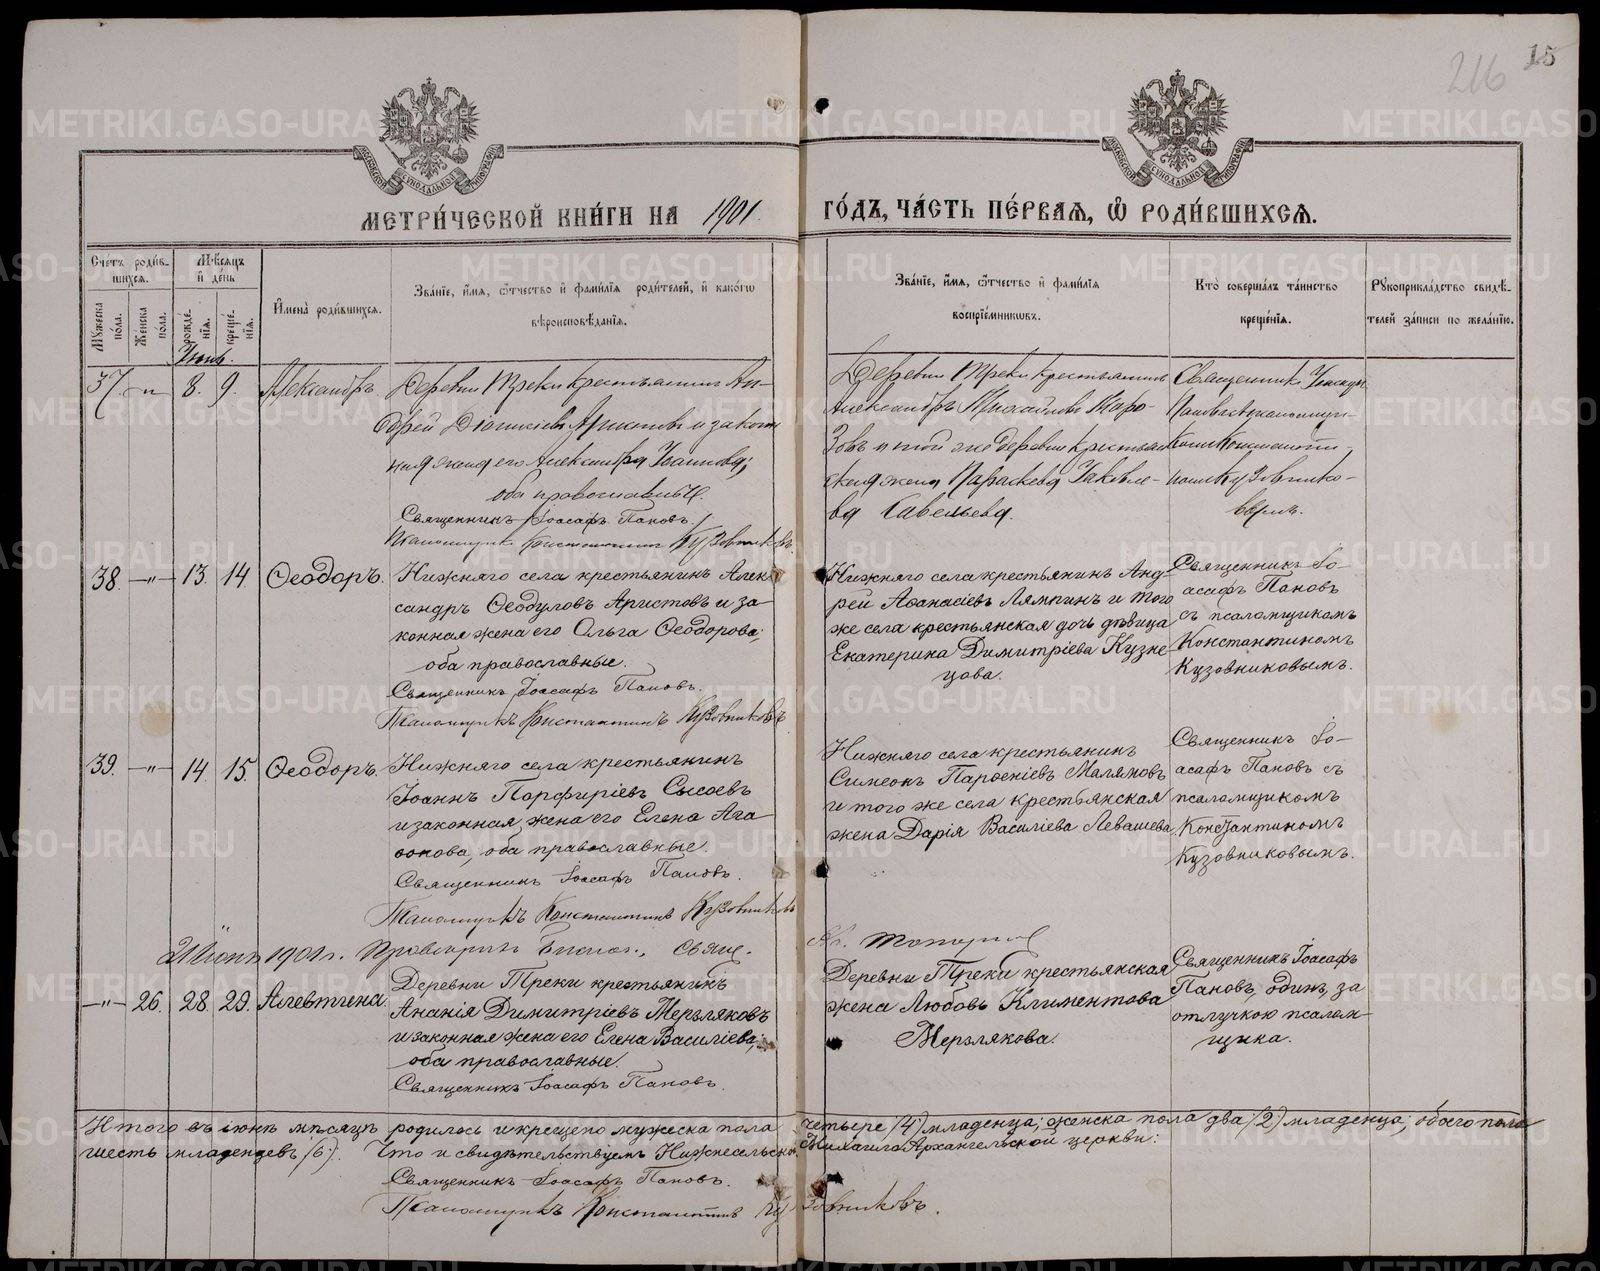 216 15
МЕТРИ́ЧЕСКОЙ КНИ́ГИ НА 1901. ГО́ДЪ, ЧА́СТЬ ПЕ́РВАѦ, Ѽ РОДИ́ВШИХСѦ.
Сче́тъ роди́вшихсѧ.
Мꙋ́жеска пола.
Же́нска пола.
Мѣ́сѧцъ и҆ де́нь
рожде́нїѧ.
креще́нїѧ.
И҆мена̀ роди́вшихсѧ.
Зва́нїе, и҆́мѧ, ѻ҆́тчество и҆ фами́лїѧ роди́телей, и҆ како́гѡ
вѣроисповѣ́данїѧ.
Зва́нїе, и҆́мѧ, ѻ҆́тчество и҆ фами́лїѧ
воспрїе́мникѡвъ.
Кто̀ соверша́лъ та́инство
креще́нїѧ.
Рꙋкоприкла́дство свидѣ́телей за́писи по жела́нїю.
Iюнь.
37. —„— 8. 9. Александръ.
Деревни Треки крестьянинъ Ан-
дрей Діонисіевъ Аристовъ и закон
ная жена его Александра Іоаннова;
оба православные.
Священникъ Іоасафъ Пановъ.
Псаломщикъ Константинъ Кузовниковъ.
Деревни Треки крестьянинъ
Александръ Михайловъ Моро-
зовъ и той же деревни крестьян
ская жена Параскева Іаковле-
ва Савельева.
Священникъ Іоасафъ
Пановъ съ псаломщи-
комъ Константи-
номъ Кузовнико-
вымъ.
38. —„— 13. 14. Ѳеодоръ.
Нижняго села крестьянинъ Алек
сандръ Ѳеодуловъ Аристовъ и за-
конная жена его Ольга Ѳеодорова;
оба православные.
Священникъ Іоасафъ Пановъ.
Псаломщикъ Константинъ Кузовниковъ
Нижняго села крестьянинъ Анд-
рей Аѳанасіевъ Лямпинъ и того
же села крестьянская дочь дѣвица
Екатерина Димитріева Кузне-
цова.
Священникъ Іо-
асафъ Пановъ
съ псаломщикомъ
Константиномъ
Кузовниковымъ.
39. —„— 14. 15. Ѳеодоръ.
Нижняго села крестьянинъ
Іоаннъ Порфиріевъ Сысоевъ
и законная жена его Елена Ага-
ѳонова, оба православные.
Священникъ Іоасафъ Пановъ.
Псаломщикъ Константинъ Кузовниковъ
Нижняго села крестьянинъ
Симеонъ Парѳеніевъ Маляновъ
и того же села крестьянская
жена Дарія Василіева Левашева
Священникъ Іо-
асафъ Пановъ съ
псаломщикомъ
Константиномъ
Кузовниковымъ.
1901 г.
—„— 26. 28. 29. Алевтина.
Деревни Треки крестьянинъ
Ананія Димитріевъ Мерзляковъ
и законная жена его Елена Василіева;
оба православные.
Священникъ Іоасафъ Пановъ.
Деревни Треки крестьянская
жена Любовь Климентова
Мерзлякова.
Священникъ Іоасафъ
Пановъ, одинъ, за
отлучкою псалом-
щика.
Итого въ іюнѣ мѣсяцѣ родилось и крещено мужеска пола четыре (4) младенца; женска пола два (2) младенца; обоего пола
шесть младенцевъ (6). Что и свидѣтельствуемъ Нижнесельской Михаило Архангельской церкви:
Священникъ Іоасафъ Пановъ.
Псаломщикъ Константинъ Кузовниковъ.
METRIKI.GASO-URAL.RU